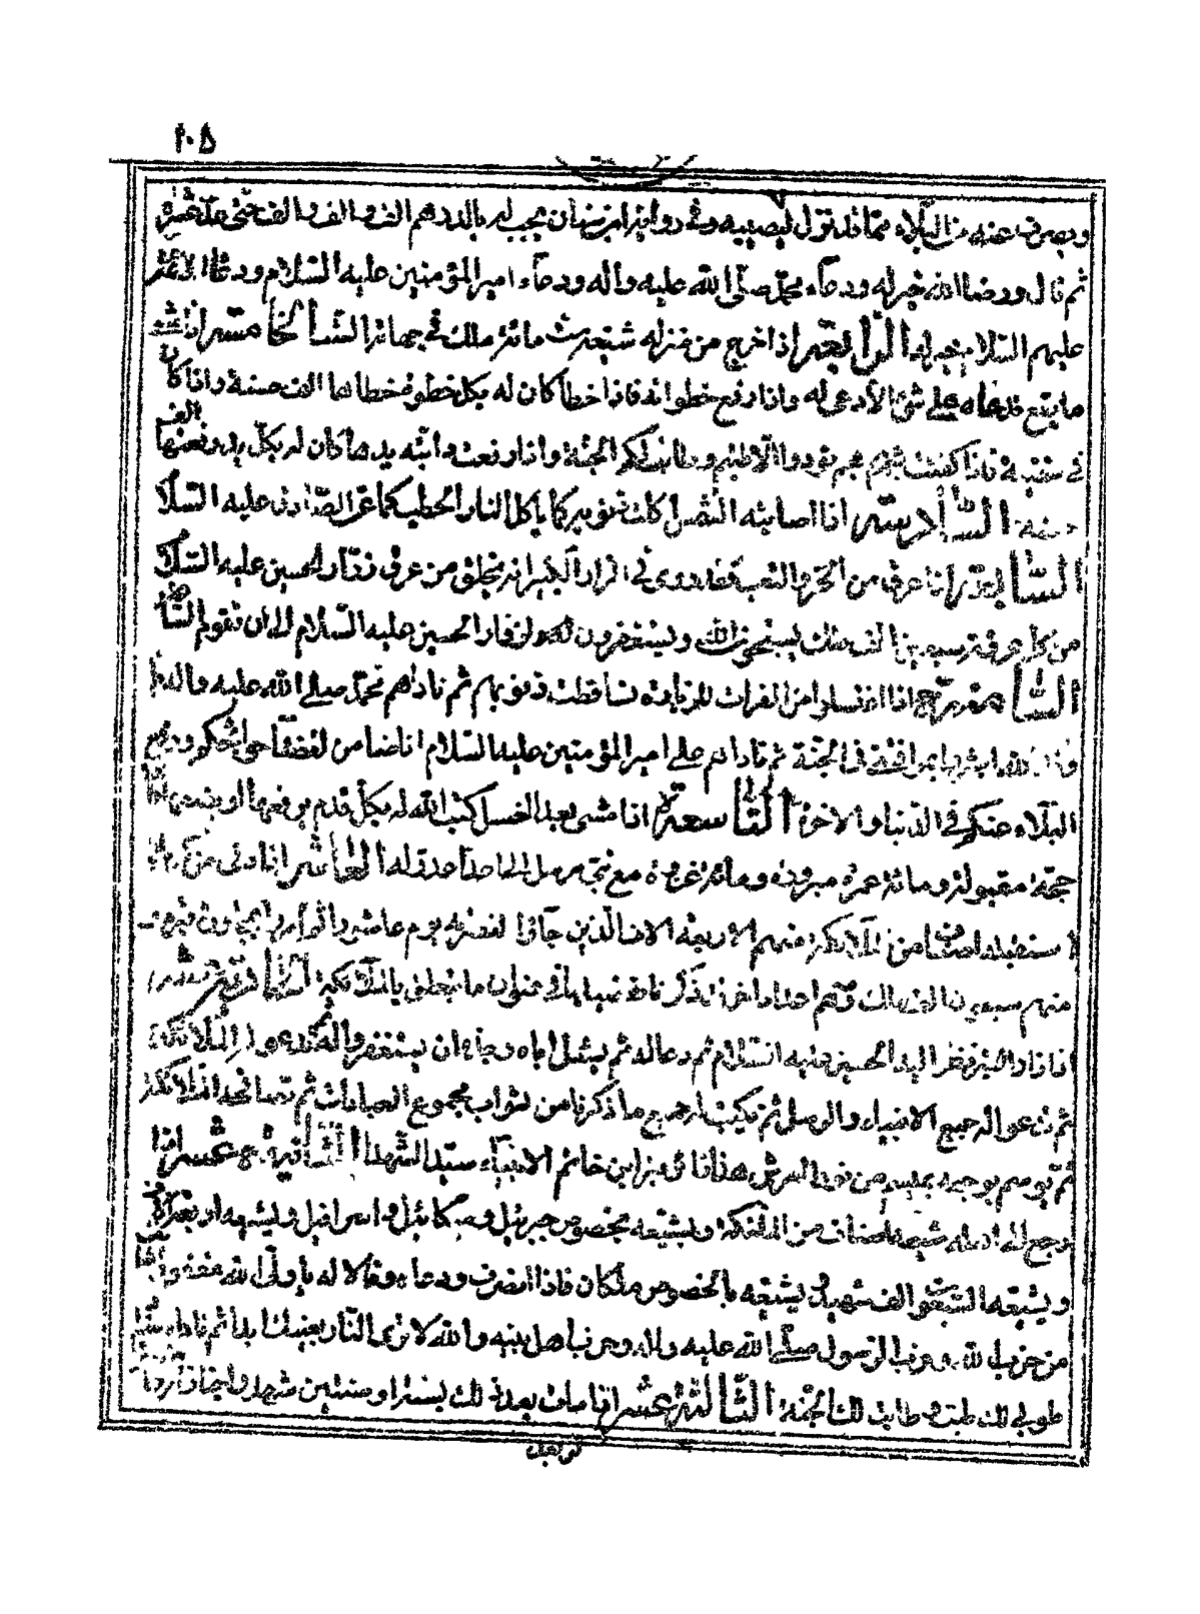 ٢٠٥
ويصرف عنه من البلاء مما قد نزل ليصيبه وفي رواية ابن سنان يحسب له بالدرهم الف و الف و الف حتى عد عشرة
ثم قال ورضا الله خير له ودعاء محمد صلى الله عليه وآله ودعاء امير المؤمنين عليه السلام ودعاء الائمة
عليهم السلام خير له الرابعة اذا خرج من منزله شيعه ست مائة ملك في جهاته الست الخامسة اذا مشى
ما يقع قدماه على شئ الا دعى له واذا رفع خطوا فاذا خطا كان له بكل خطوة خطاها الف حسنة واذا كان
في سفينة فاذا كفئت بهم نودوا الا طبتم وطابت لكم الجنة واذا رفعت دابته يدها كان له بكل يد رفعتها الف
حسنة السادسة اذا اصابته الشمس اكلت ذنوبه كما ياكل النار الحطب كما عن الصادق عليه السلا
السابعة اذا عرق من الحر والتعب فقد روى في المزار الكبير انه يخلق من عرق زوار الحسين عليه السلا
من كل عرقة سبعين الف ملك يسبحون الله ويستغفرون له ولزوار الحسين عليه السلام الى ان تقوم الساعة
الثامنة اذا اغتسلوا من الفرات للزيارة تساقطت ذنوبهم ثم ناداهم محمد صلى الله عليه واله
وفد الله ابشروا بمرافقتي في الجنة ثم ناداهم على امير المؤمنين عليه السلام انا ضامن لقضاء حوائجكم ودفع
البلاء عنكم في الدنيا والاخرة التاسعة اذا مشى بعد الغسل كتب الله له بكل قدم يرفعها او يضعها مائة
حجة مقبولة ومائة عمرة مبرورة ومائة غزوة مع نبي مرسل الى اعداء عدو له العاشر اذا دنى من كربلا
استقبله اصناف من الملائكة منهم الاربعة الاف الذين جاؤا لنصرته يوم عاشوراء وامروا
منهم سبعون الف ملك ومنهم اعداد اخر تذكر فضيلها في عنوان ما يتعلق بالملائكة الحادية عشر
اذا زار القبر نظر اليه الحسين عليه السلام ثم دعا له ثم يسئل اباه وجده ان يستغفروا له ثم تدعو له الملائكة
ثم تدعو له جميع الانبياء والرسل ثم يكتب له جميع ما ذكرنا من ثواب مجموع العبادات ثم تصافحه الملائكة
ثم يوسم بوجهه بميسم من نور العرش هذا زائر قبر ابن خاتم الانبياء سيد الشهداء الثانية عشر اذا
رجع الى اهله شيعه اصناف من الملئكة ويشيعه بخصوص جبرئيل وميكائيل واسرافيل
ويشيعه السبعون الف ويشيعه بالخصوص ملكان فاذا انصرف ودعاه وقالا له يا ولى الله مغفور لك
من حزب الله وحزب الرسول صلى الله عليه واله وحزب اهل بيته والله لا ترى النار بعينك ابدا ثم ناداه
طوبى لك طبت وطابت لك الجنة الثالثة عشر اذا مات بعد ذلك بسنة او سنتين